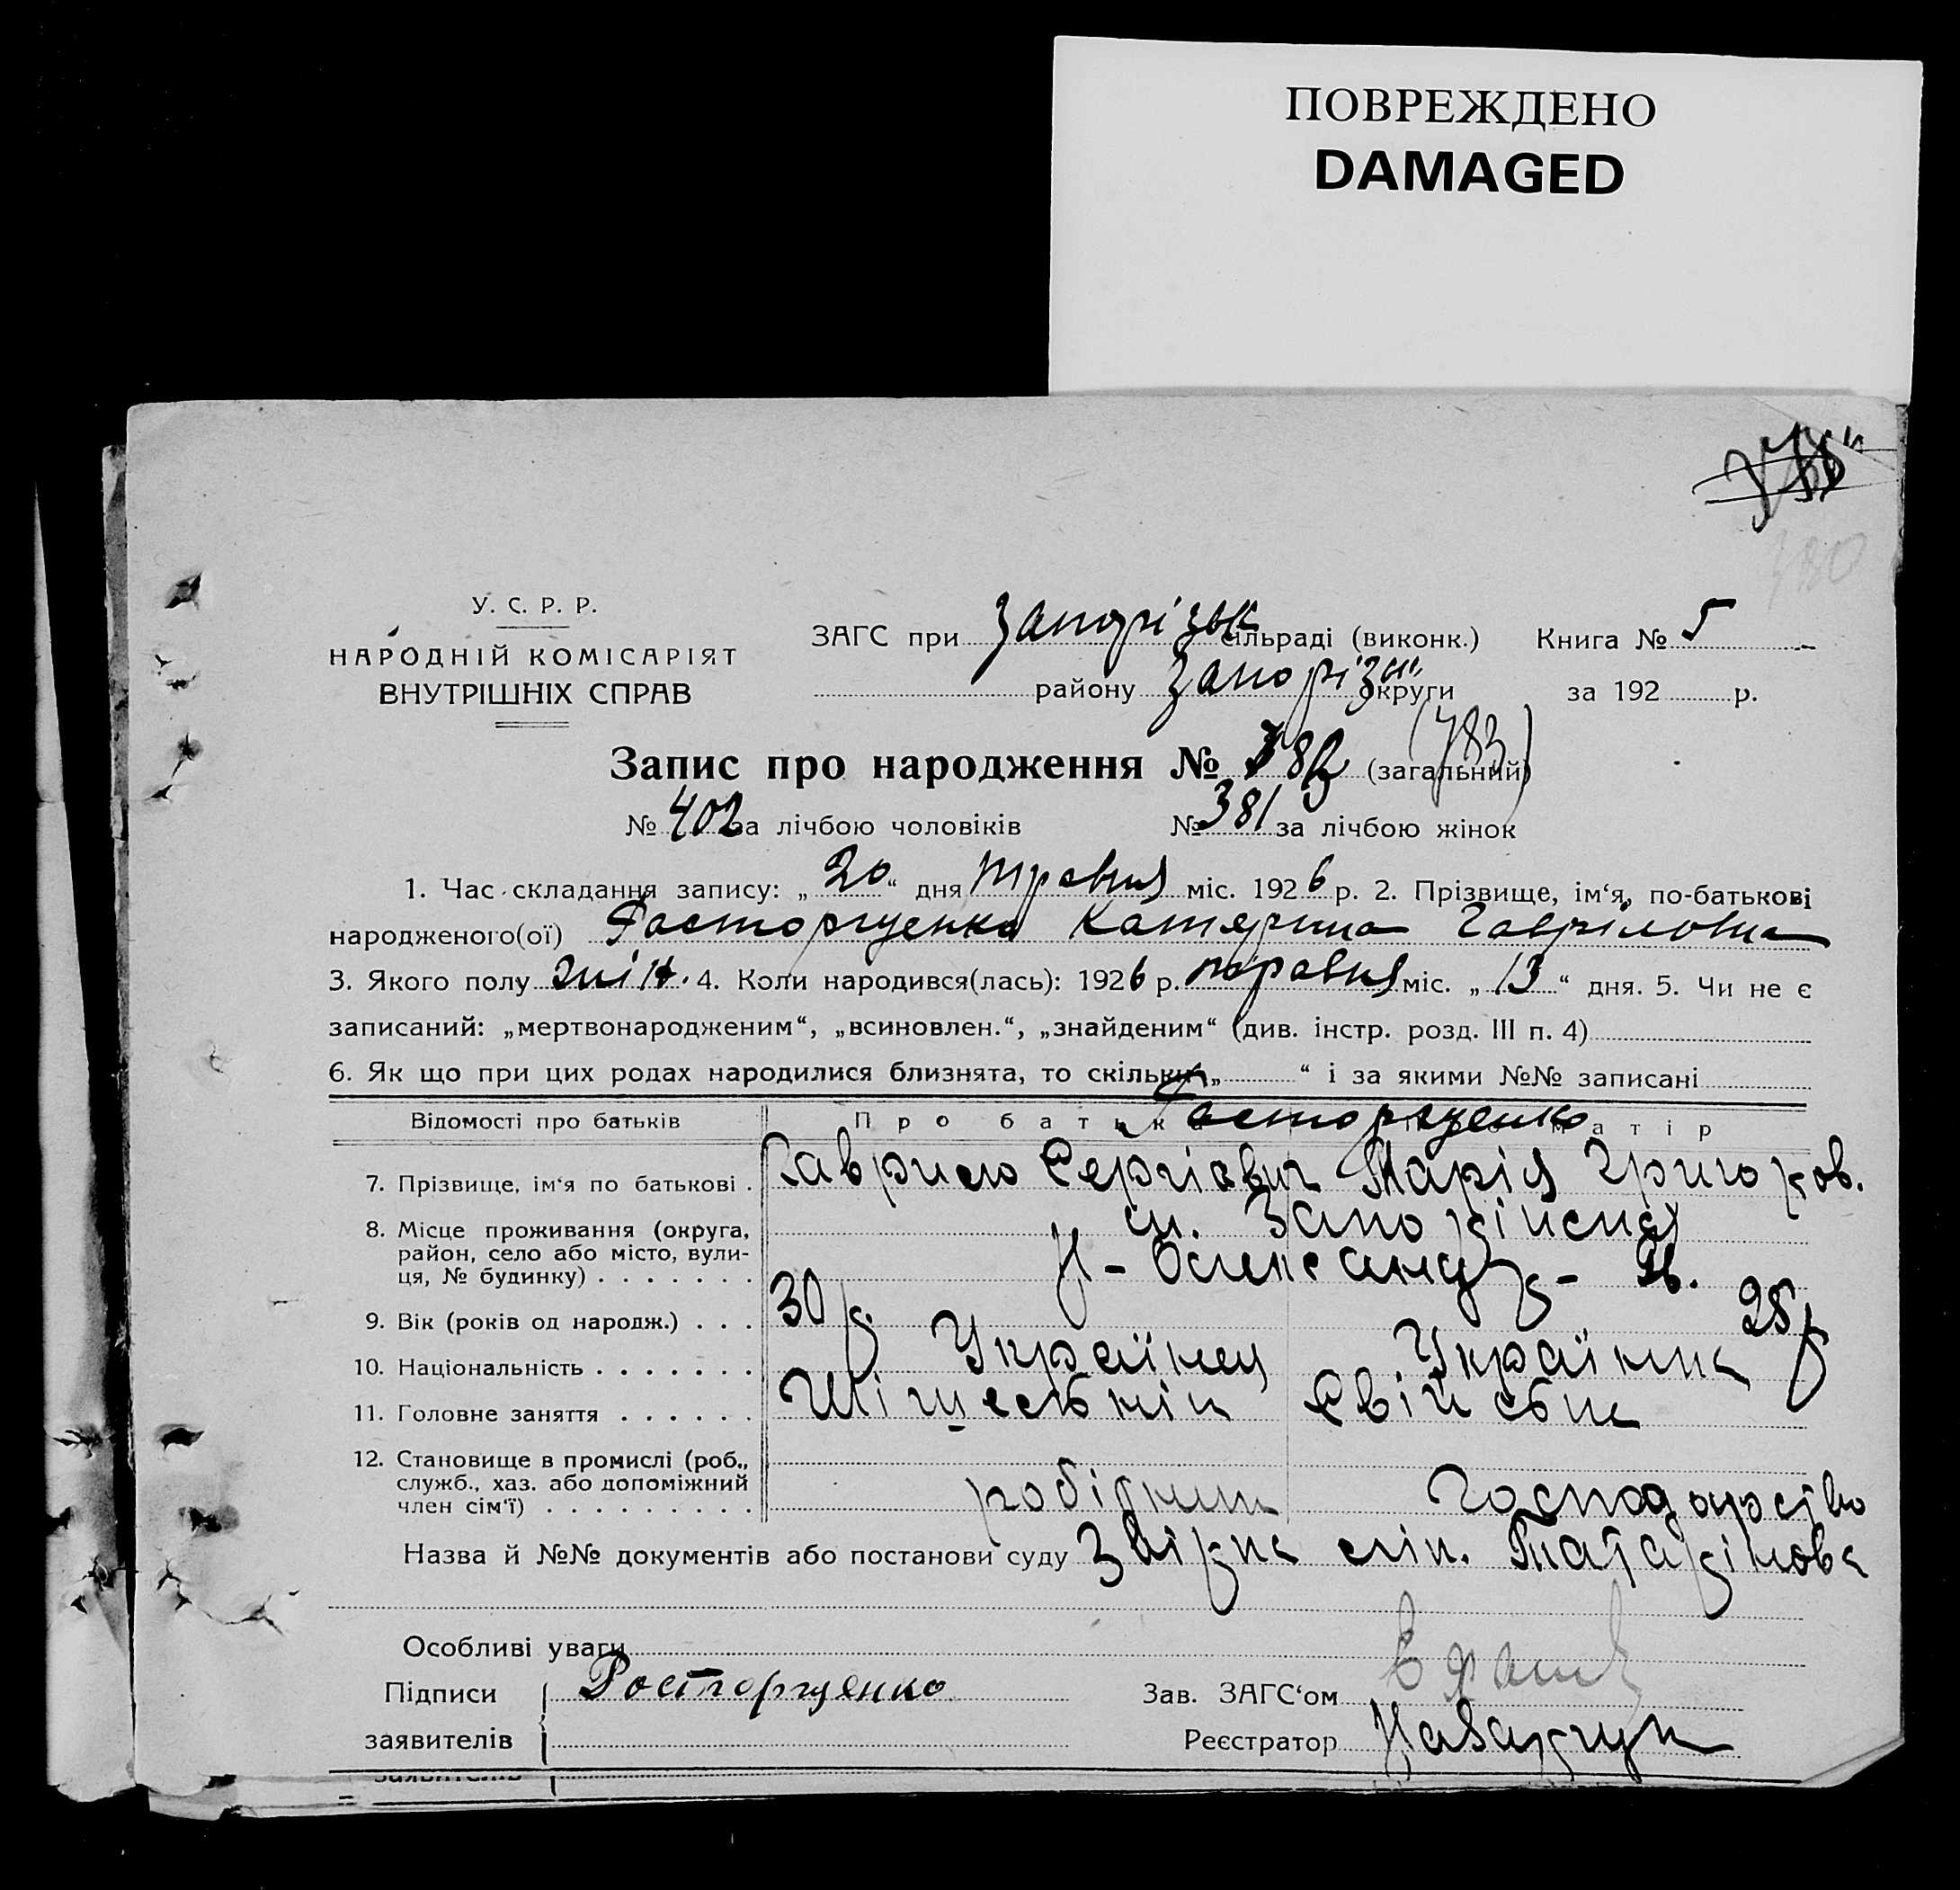 ПОВРЕЖДЕНО
DAMAGED
380
У. С. Р. Р.
НАРОДНІЙ КОМІСАРІЯТ
ВНУТРІШНІХ СПРАВ
ЗАГС при Запорізьк сільраді (виконк.) Книга № 5
району Запорізьк округи за 192 р.
Запис про народження № 783 (загальний) (783)
№ 402 за лічбою чоловіків № 381 за лічбою жінок
1. Час складання запису: „20“ дня травня міс. 1926 р. 2. Прізвище, ім‘я, по-батькові
народженого(ої) Расторгуенко Катерина Гавріловна
3. Якого полу жін. 4. Коли народився(лась): 1926 р. травня міс. „13“ дня. 5. Чи не є
записаний: „мертвонародженим“, „всиновлен.“, „знайденим“ (див. інстр. розд. III п. 4)
6. Як що при цих родах народилися близнята, то скільки „ “ і за якими №№ записані
Відомості про батьків Про батька Про матір
Расторгуенко
7. Прізвище, ім‘я по батькові . Гаврило Сергієвич Марія Григоров.
8. Місце проживання (округа,
район, село або місто, вули-
ця, № будинку) . . . . . . .
9. Вік (років од народж.) . . . 30 р. 25 р
10. Національність . . . . . . . Українец Українка
11. Головне заняття . . . . . .
12. Становище в промислі (роб.,
служб., хаз. або допоміжний
член сім‘ї) . . . . . . . . . робітник Господарство
Назва й №№ документів або постанови суду
Особливі уваги
Підписи Расторгуенко Зав. ЗАГС‘ом
заявителів Реєстратор
заявителів